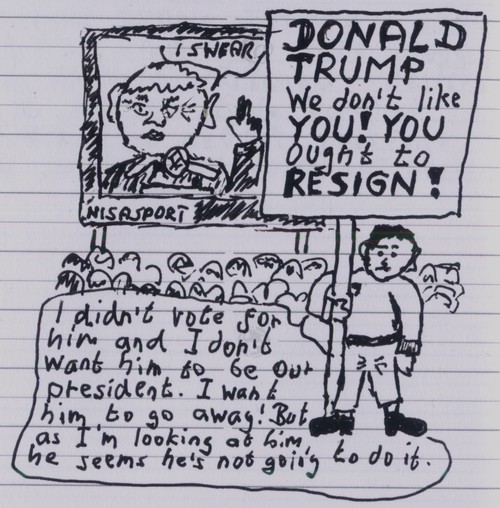 I SWEAR
DONALD
TRUMP
We don't like
YOU! YOU
ought to
RESIGN!
NISASPORT
I didn't vote for
him and I don't
want him to be our
president. I want
him to go away! But
as I'm looking at him
he seems he's not going to do it.